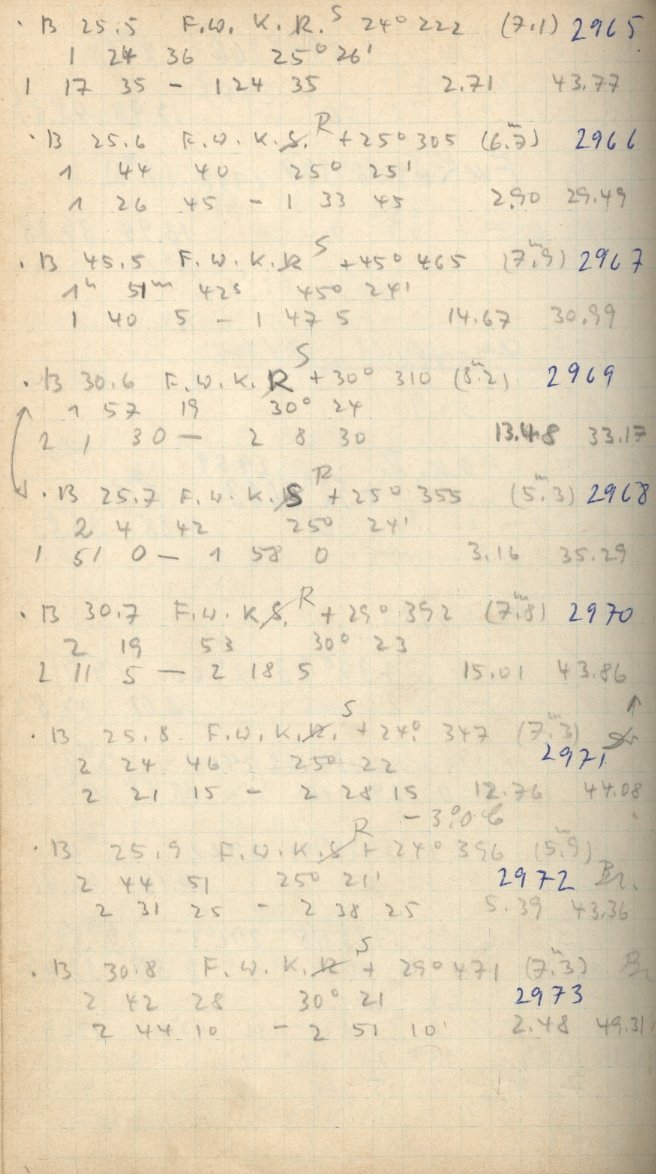 · B 25.5 F.W. K. R. S 24° 222 (7.1) 2965
1 24 36 25° 26'
1 17 35 – 1 24 35 2.71 43.77
· B 25.6 F.W.K.S. R +25° 305 (6.7) 2966
1 44 40 25° 25'
1 26 45 – 1 33 45 2.90 29.49
· B 45.5 F.W.K.R S +45° 465 (7.9) 2967
1h 51m 42s 45° 24'
1 40 5 – 1 47 5 14.67 30.99
· B 30.6 F.W.K.R S +30° 310 (8.2) 2969
1 57 19 30° 24
2 1 30 – 2 8 30 13.48 33.17
· B 25.7 F.W.K.S R +25° 355 (5.3) 2968
2 4 42 25° 24'
1 51 0 – 1 58 0 3.16 35.29
· B 30.7 F.W.K.S. R +29° 392 (7.8) 2970
2 19 53 30° 23
2 11 5 – 2 18 5 15.01 43.86
· B 25.8 F.W.K.R. S +24° 347 (7.3)
2 24 46 25° 22 2971
2 21 15 – 2 28 15 12.76 44.08
– 3°.0 C
· B 25.9 F.W.K.S R + 24° 396 (5.9)
2 44 51 25° 21' 2972 Br.
2 31 25 – 2 38 25 5.39 43.36
· B 30.8 F.W.K.R S + 29° 471 (7.3) Br
2 42 28 30° 21 2973
2 44 10 – 2 51 10 2.48 49.31